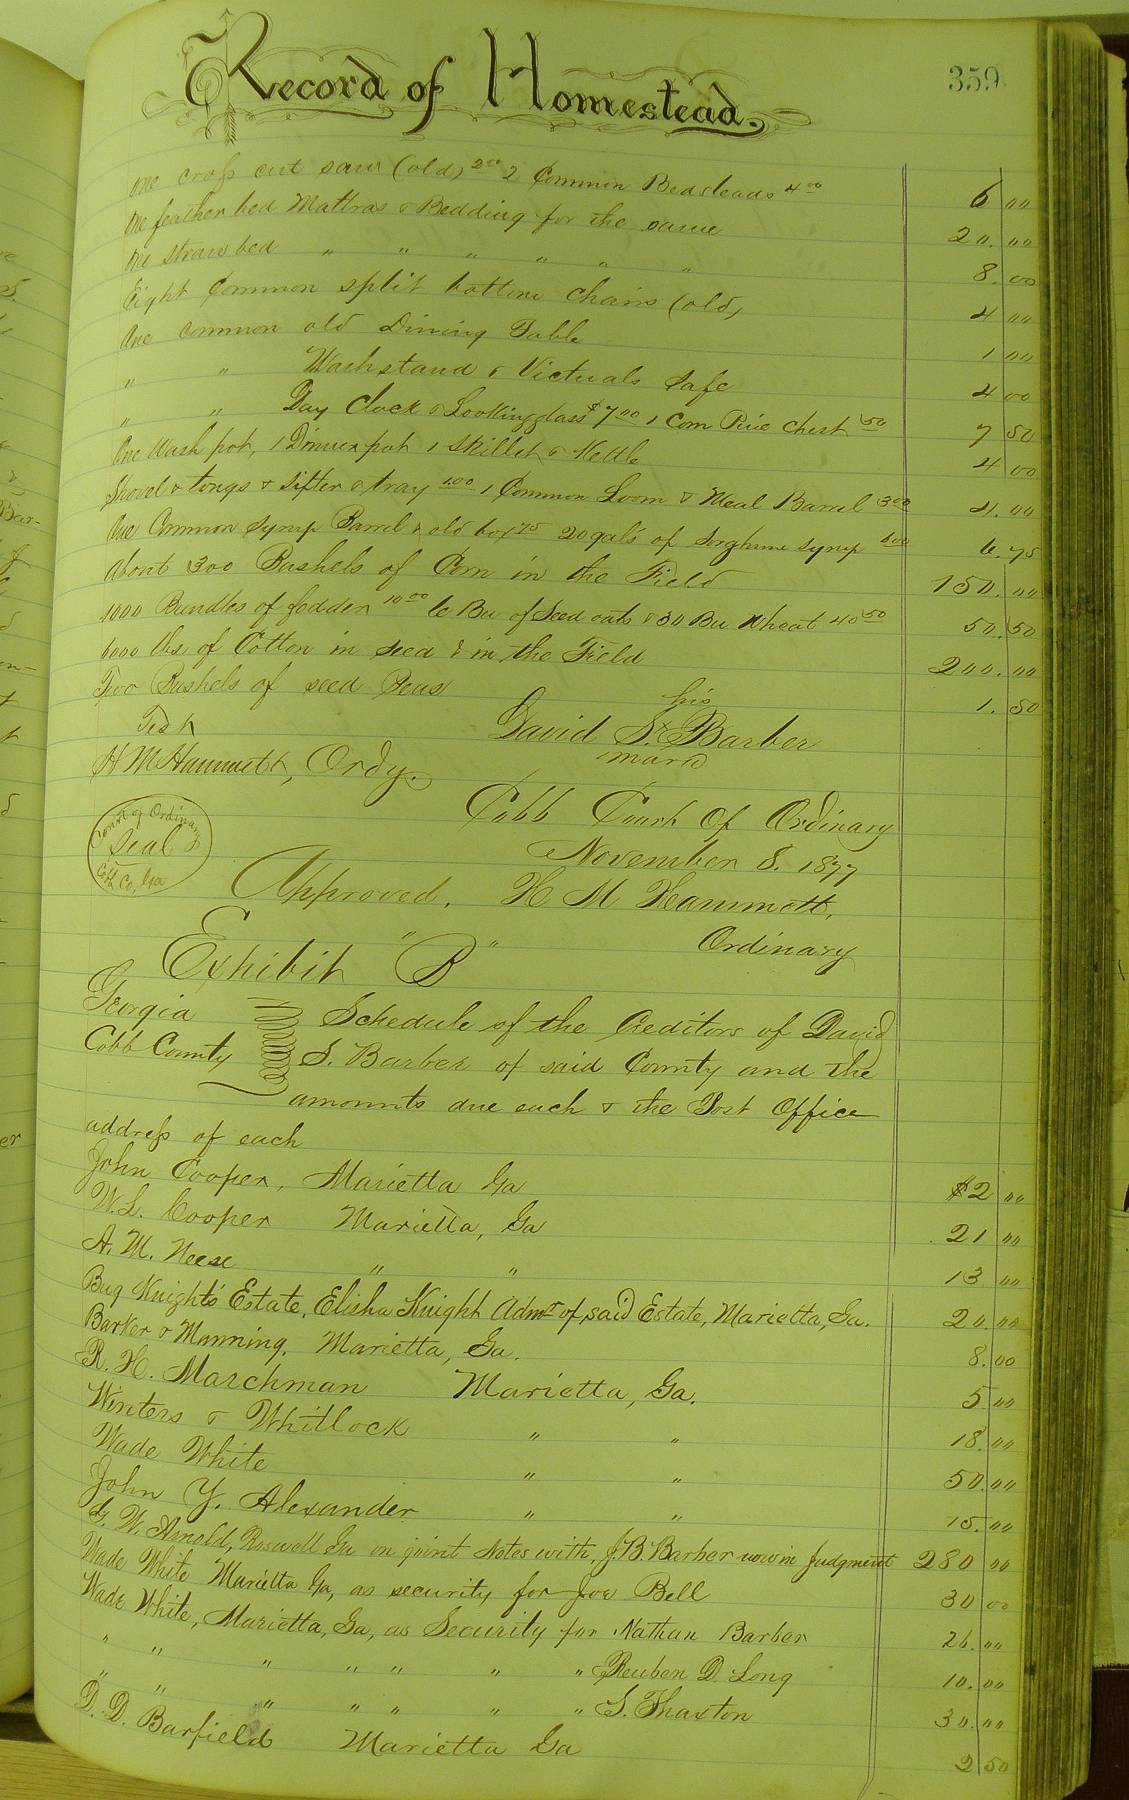 359
Record of Homestead.
One cross cut saw (old) 2 00 2 Common Bedsteads 4 00 6 00
One feather bed Mattras & Bedding for the same 20.00
One straw bed " " " " " " 8.00
Eight Common split bottom chairs (old) 4 00
One common old Dining Table 1 00
" " Washstand & Victuals Safe 4 00
" " Day Clock & Lookingglass $7 00 1 Com Pine Chest 50 7 50
One Wash pot, 1 Dinner pot 1 skillet & Kettle 4 00
Shovel & tongs & sifter & tray 1.00 1 Common Loom & Meal Barrel 3 00 4.00
One Common Syrup Barrel & old box 75 20 gals of Sorghum syrup 6 00 6.75
About 300 Bushels of Corn in the Field 150.00
1000 Bundles of fodder 10 00 6 Bu of Seed oats & 30 Bu Wheat 40 50 50.50
6000 lbs of Cotton in seed & in the Field 200.00
Two Bushels of seed Peas 1.50
Test
his
David S. X Barber
mark
H M Hammett, Ordy.
Court of Ordinary
Seal
Cobb Co, Ga
Cobb Court Of Ordinary
November 8. 1877
Approved. H M Hammett,
Ordinary
Exhibit "B"
Georgia Schedule of the Creditors of David
Cobb County S. Barber of said County and the
amounts due each & the Post Office
address of each
John Cooper, Marietta Ga $2 00
W.L. Cooper Marietta, Ga 21 00
A. M. Neese " " 13 00
Bug Knight's Estate, Elisha Knight Admt of said Estate, Marietta, Ga. 20.00
Barker & Manning. Marietta, Ga. 8.00
R. H. Marchman Marietta, Ga. 5 00
Winters & Whitlock " " 18.00
Wade White " " 50.00
John Y. Alexander " " 15.00
G. W. Arnold, Roswell Ga on joint Notes with J.B. Barber now in Judgment 280 00
Wade White Marietta Ga, as security for Joe Bell 30 00
Wade White, Marietta, Ga, as Security for Nathan Barber 26.00
" " " " " " " Reuben D. Long 10.00
" " " " " " " S. Thaxton 30.00
D. D. Barfield Marietta Ga 2 50